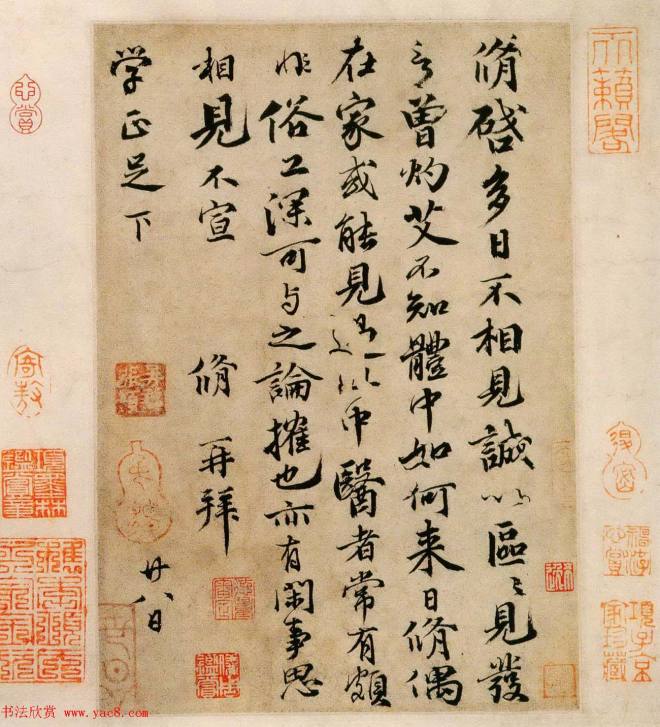 脩啓多日不相見誠以區區見發
言曾灼艾不知體中如何来日脩偶
在家或能見過此中醫者常有頗
非俗工深可与之論搉也亦有閑事思
相見不宣 脩再拜 廿八日
学正足下
天籟閣
项子京家珍藏
书法欣赏 www.yac8.com